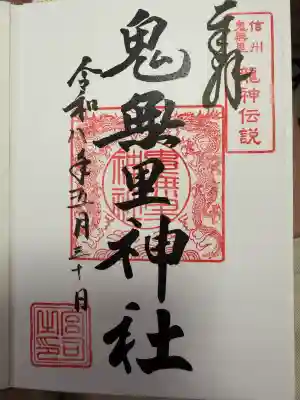 信州
鬼無里
龍神伝説
奉拝
鬼無里神社
令和八年五月三十日
鬼無里
神社